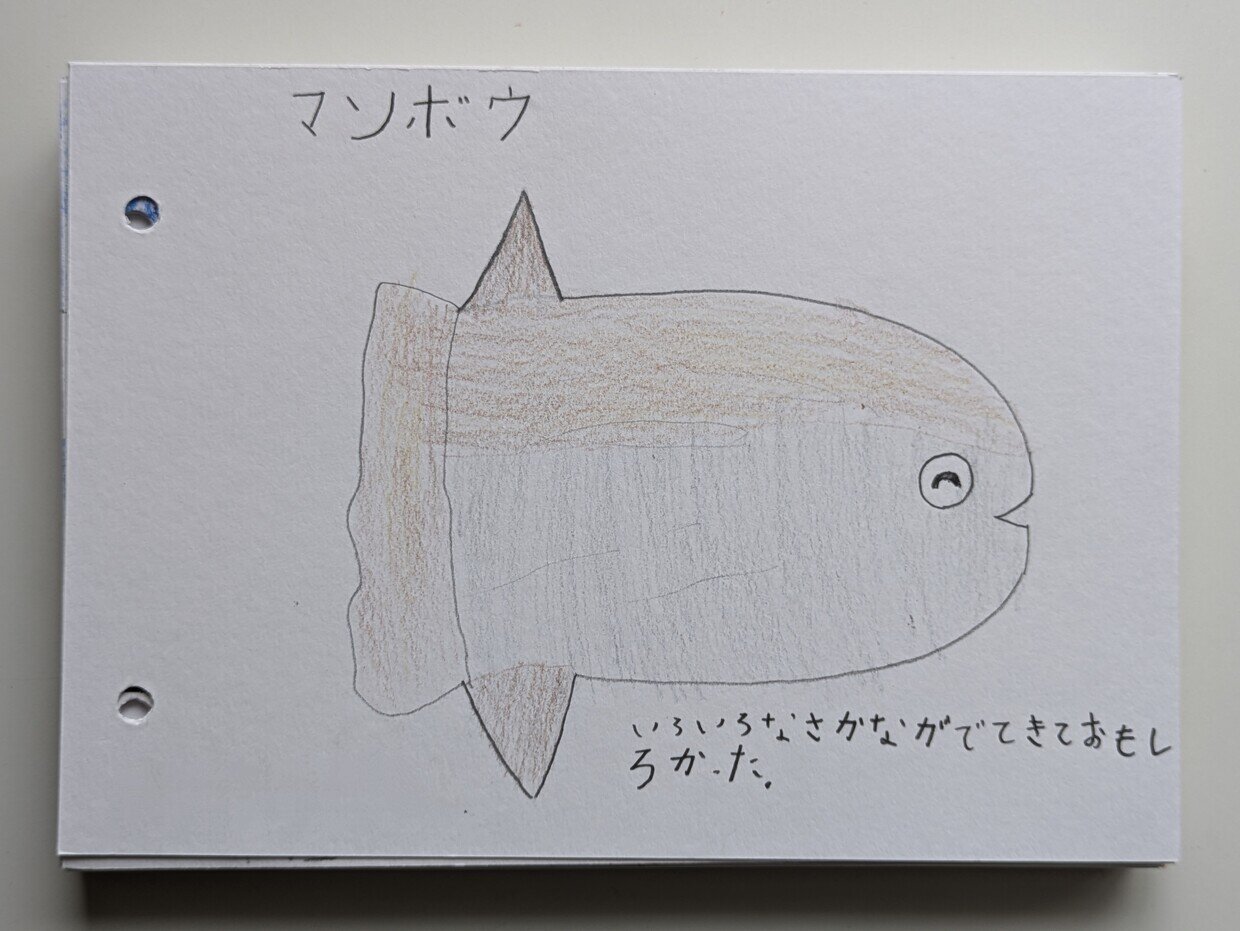 マンボウ
いろいろなさかながでてきておもし
ろかった.